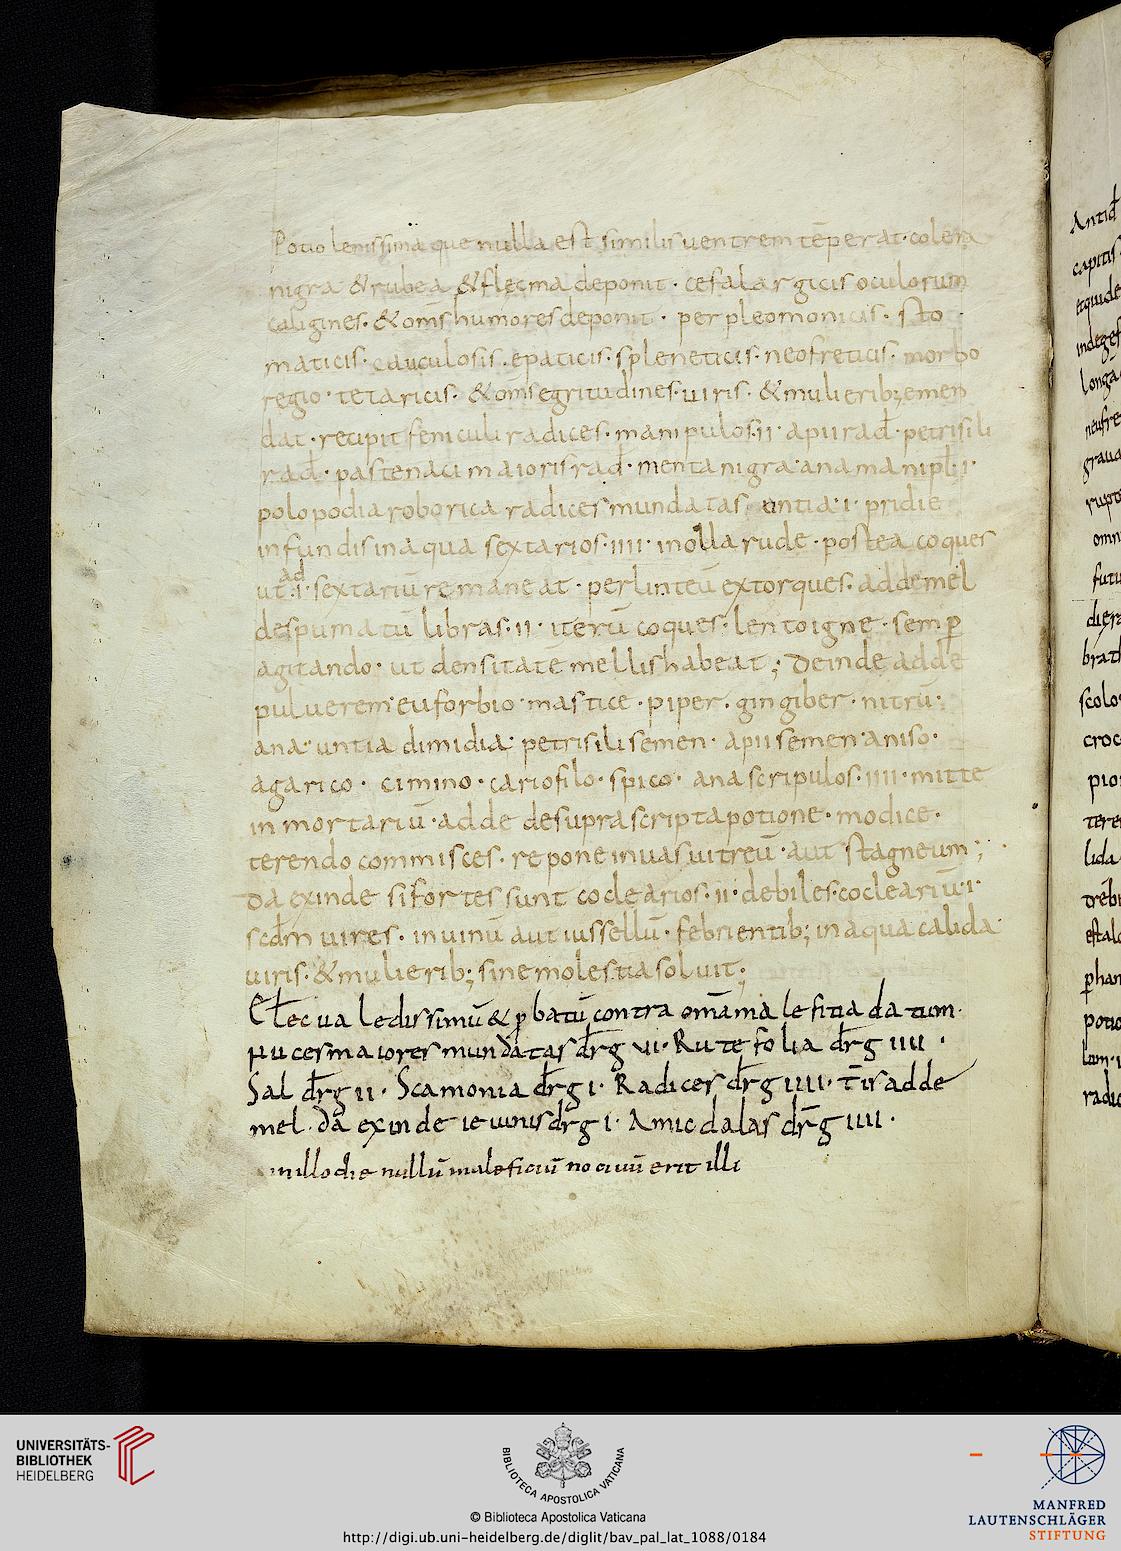 Potio lenissima que nulla est similis uentrem tēperat· colera
nigra & rubea & flecma deponit· cefalargicis oculorum
caligines· & om̄s humores deponit· perpleomonicis· sto
maticis· cauculosis· epaticis· spleneticis· neofreticis· morbo
regio· tetaricis· & om̄s egritudines· uiris· & mulierib; emen
dat· recipit feniculi radices· manipulos· ii· apii rad̄· petrisili
rad̄· pastenaci maioris rad̄· menta nigra· ana manipl̄· i·
polopodia roborica radices mundatas· untia· i· pridie
infundis in aqua sextarios· iiii· in olla rude· postea coques
ut ad· i· sextariū remaneat· per linteū extorques· adde mel
despumatū libras· ii· iterū coques· lento igne· semꝑ
agitando· ut densitatē mellis habeat; deinde adde
puluerem euforbio· mastice· piper· gingiber· nitrū·
ana· untia dimidia· petrisili semen· apii semen· aniso·
agarico· cimino· cariofilo· spico· ana scripulos· iiii· mitte
in mortariū· adde de suprascripta potione· modice·
terendo commisces· repone in uas uitreū· aut stagneum;
Da exinde si fortes sunt coclearios· ii· debiles· cocleariū· i·
scd̄m uires· in uinū aut iussellū· febrientib; in aqua calida·
uiris· & mulierib; sine molestia soluit;
& ꝓbatū contra omā malefitia datum·
nuces maiores mundatas drḡ vi· Rute folia drḡ iiii·
Sal drḡ ii· Scamonia drḡ i· Radices drḡ iiii· adde
mel· da exinde ieiunis drḡ i· Amicdalas drḡ iiii·
in illo die nullū maleficiū nociuū erit illi
Antid̄
capitis
longa
graua
omn
brat
scolo
croc
pio
tere
lida
potio
radic
UNIVERSITÄTS-
BIBLIOTHEK
HEIDELBERG
BIBLIOTECA APOSTOLICA VATICANA
© Biblioteca Apostolica Vaticana
http://digi.ub.uni-heidelberg.de/diglit/bav_pal_lat_1088/0184
MANFRED
LAUTENSCHLÄGER
STIFTUNG